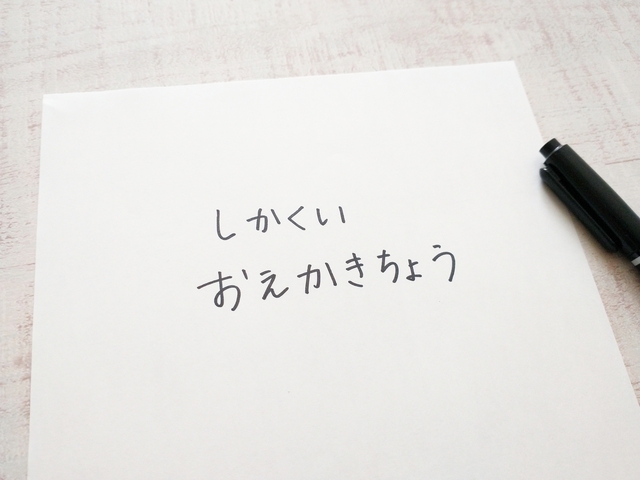 しかくい
おえかきちょう